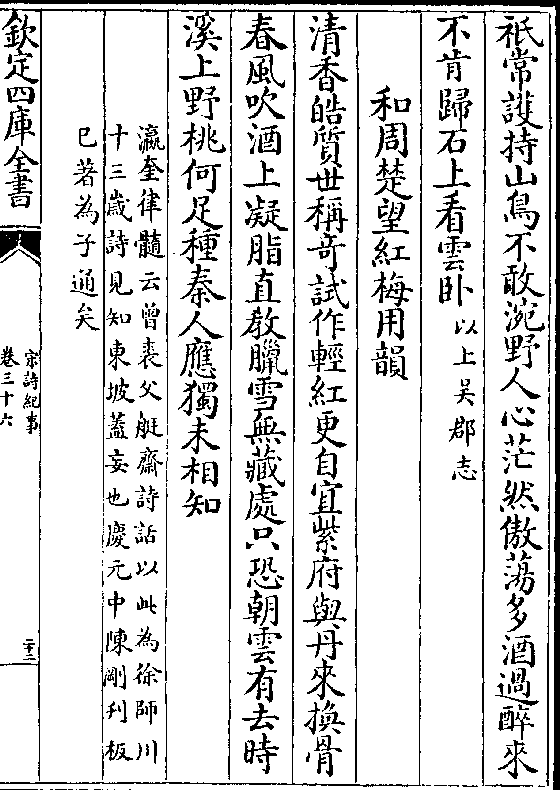 祇常護持山鳥不敢涴野人心茫然傲蕩多酒過醉來
不肯歸石上看雲卧以上吳郡志
和周楚望紅梅用韻
清香皓質世稱奇試作輕紅更自宜紫府與丹來換骨
春風吹酒上凝脂直教臘雪無藏處只恐朝雲有去時
溪上野桃何足種秦人應獨未相知
瀛奎律髓云曾裘父艇齋詩話以此為徐師川
十三歲詩見知東坡蓋妄也慶元中陳剛刋板
已著為子通矣
欽定四庫全書
宋詩紀事
卷三十六
二十二